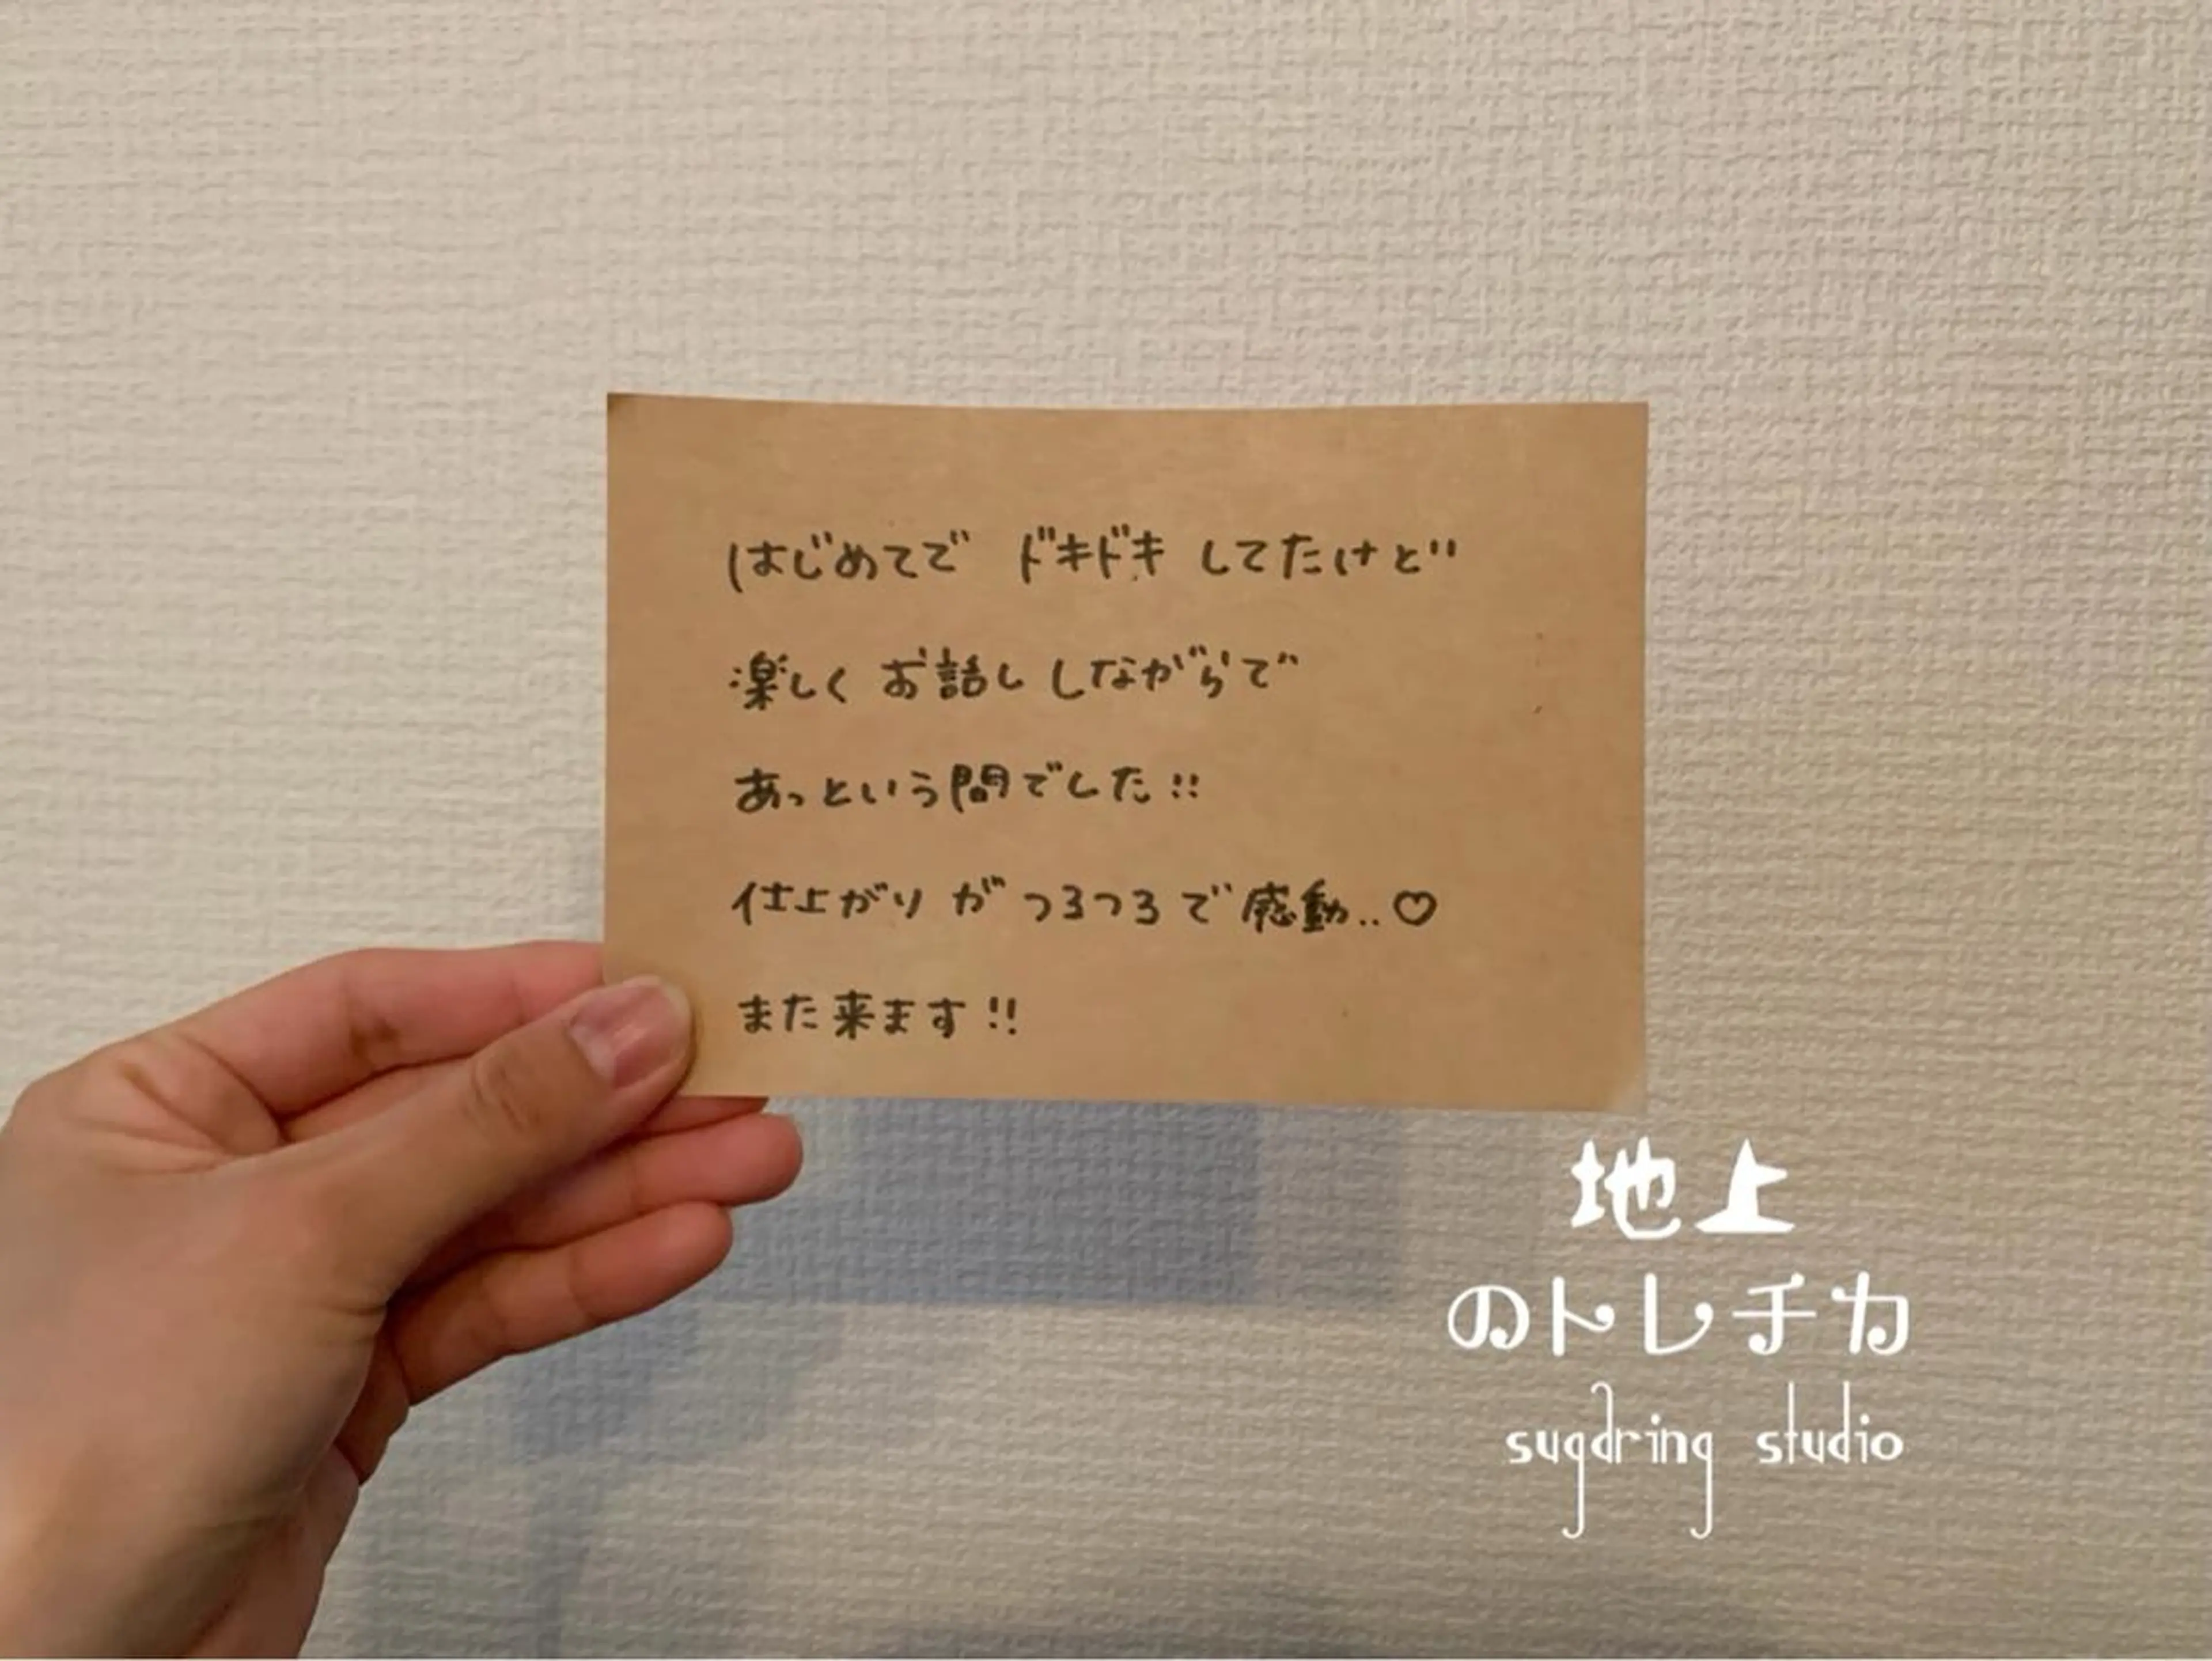 はじめてで ドキドキ してたけど
楽しく お話し しながらで
あっという間でした!!
仕上がり が つるつる で 感動..♡
また来ます!!
地上
のトレチカ
sugaring studio